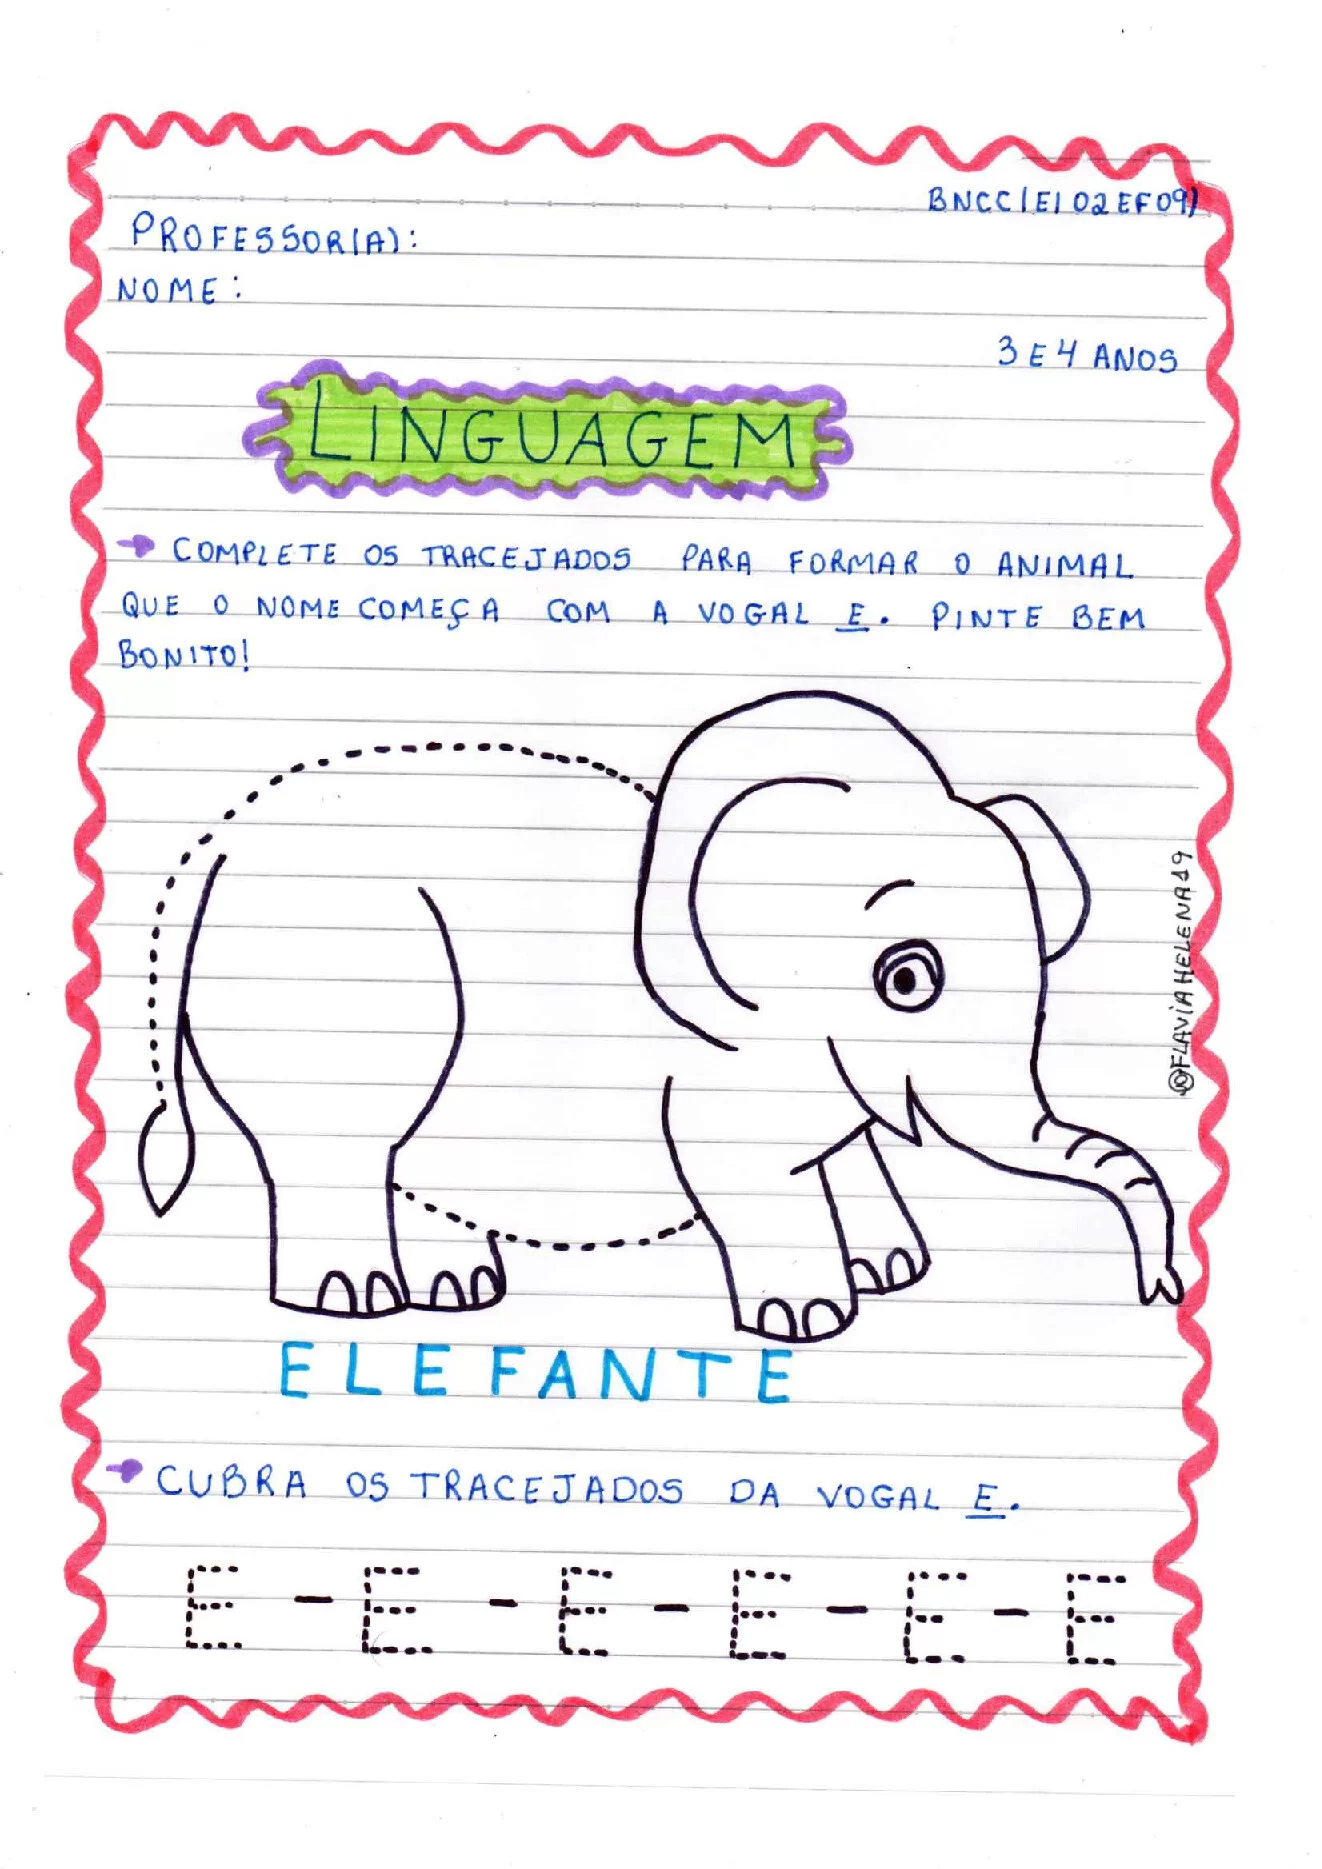 BNCC(EI02EF09)
PROFESSOR(A):
NOME:
3 E 4 ANOS
LINGUAGEM
COMPLETE OS TRACEJADOS PARA FORMAR O ANIMAL
QUE O NOME COMEÇA COM A VOGAL E. PINTE BEM
BONITO!
@FLAVIAHELENA19
ELEFANTE
CUBRA OS TRACEJADOS DA VOGAL E.
E - E - E - E - E - E